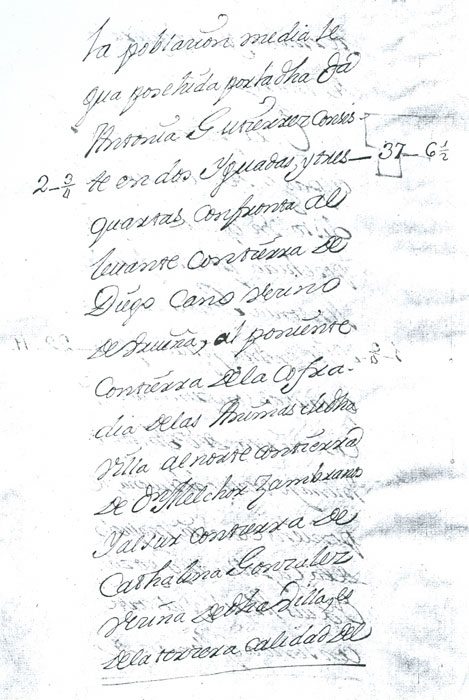 la poblazion media le
gua posehida por la dha Dã
Antonia Gutierrez consis-
2 - 3/4 te en dos Yguadas, y tres 37 - 6 1/2
quartas, confronta al
levante con tierra de
Diego Cano Vezino
de Brueña, al poniente
con tierra de la Cofra-
dia de las Animas de dha
Villa al norte con tierra
de Dn Melchor Zambrano
Y al sur con tierra de
Cathalina Gonzalez
Vezina de dha Villa, es
de la terzera calidad del